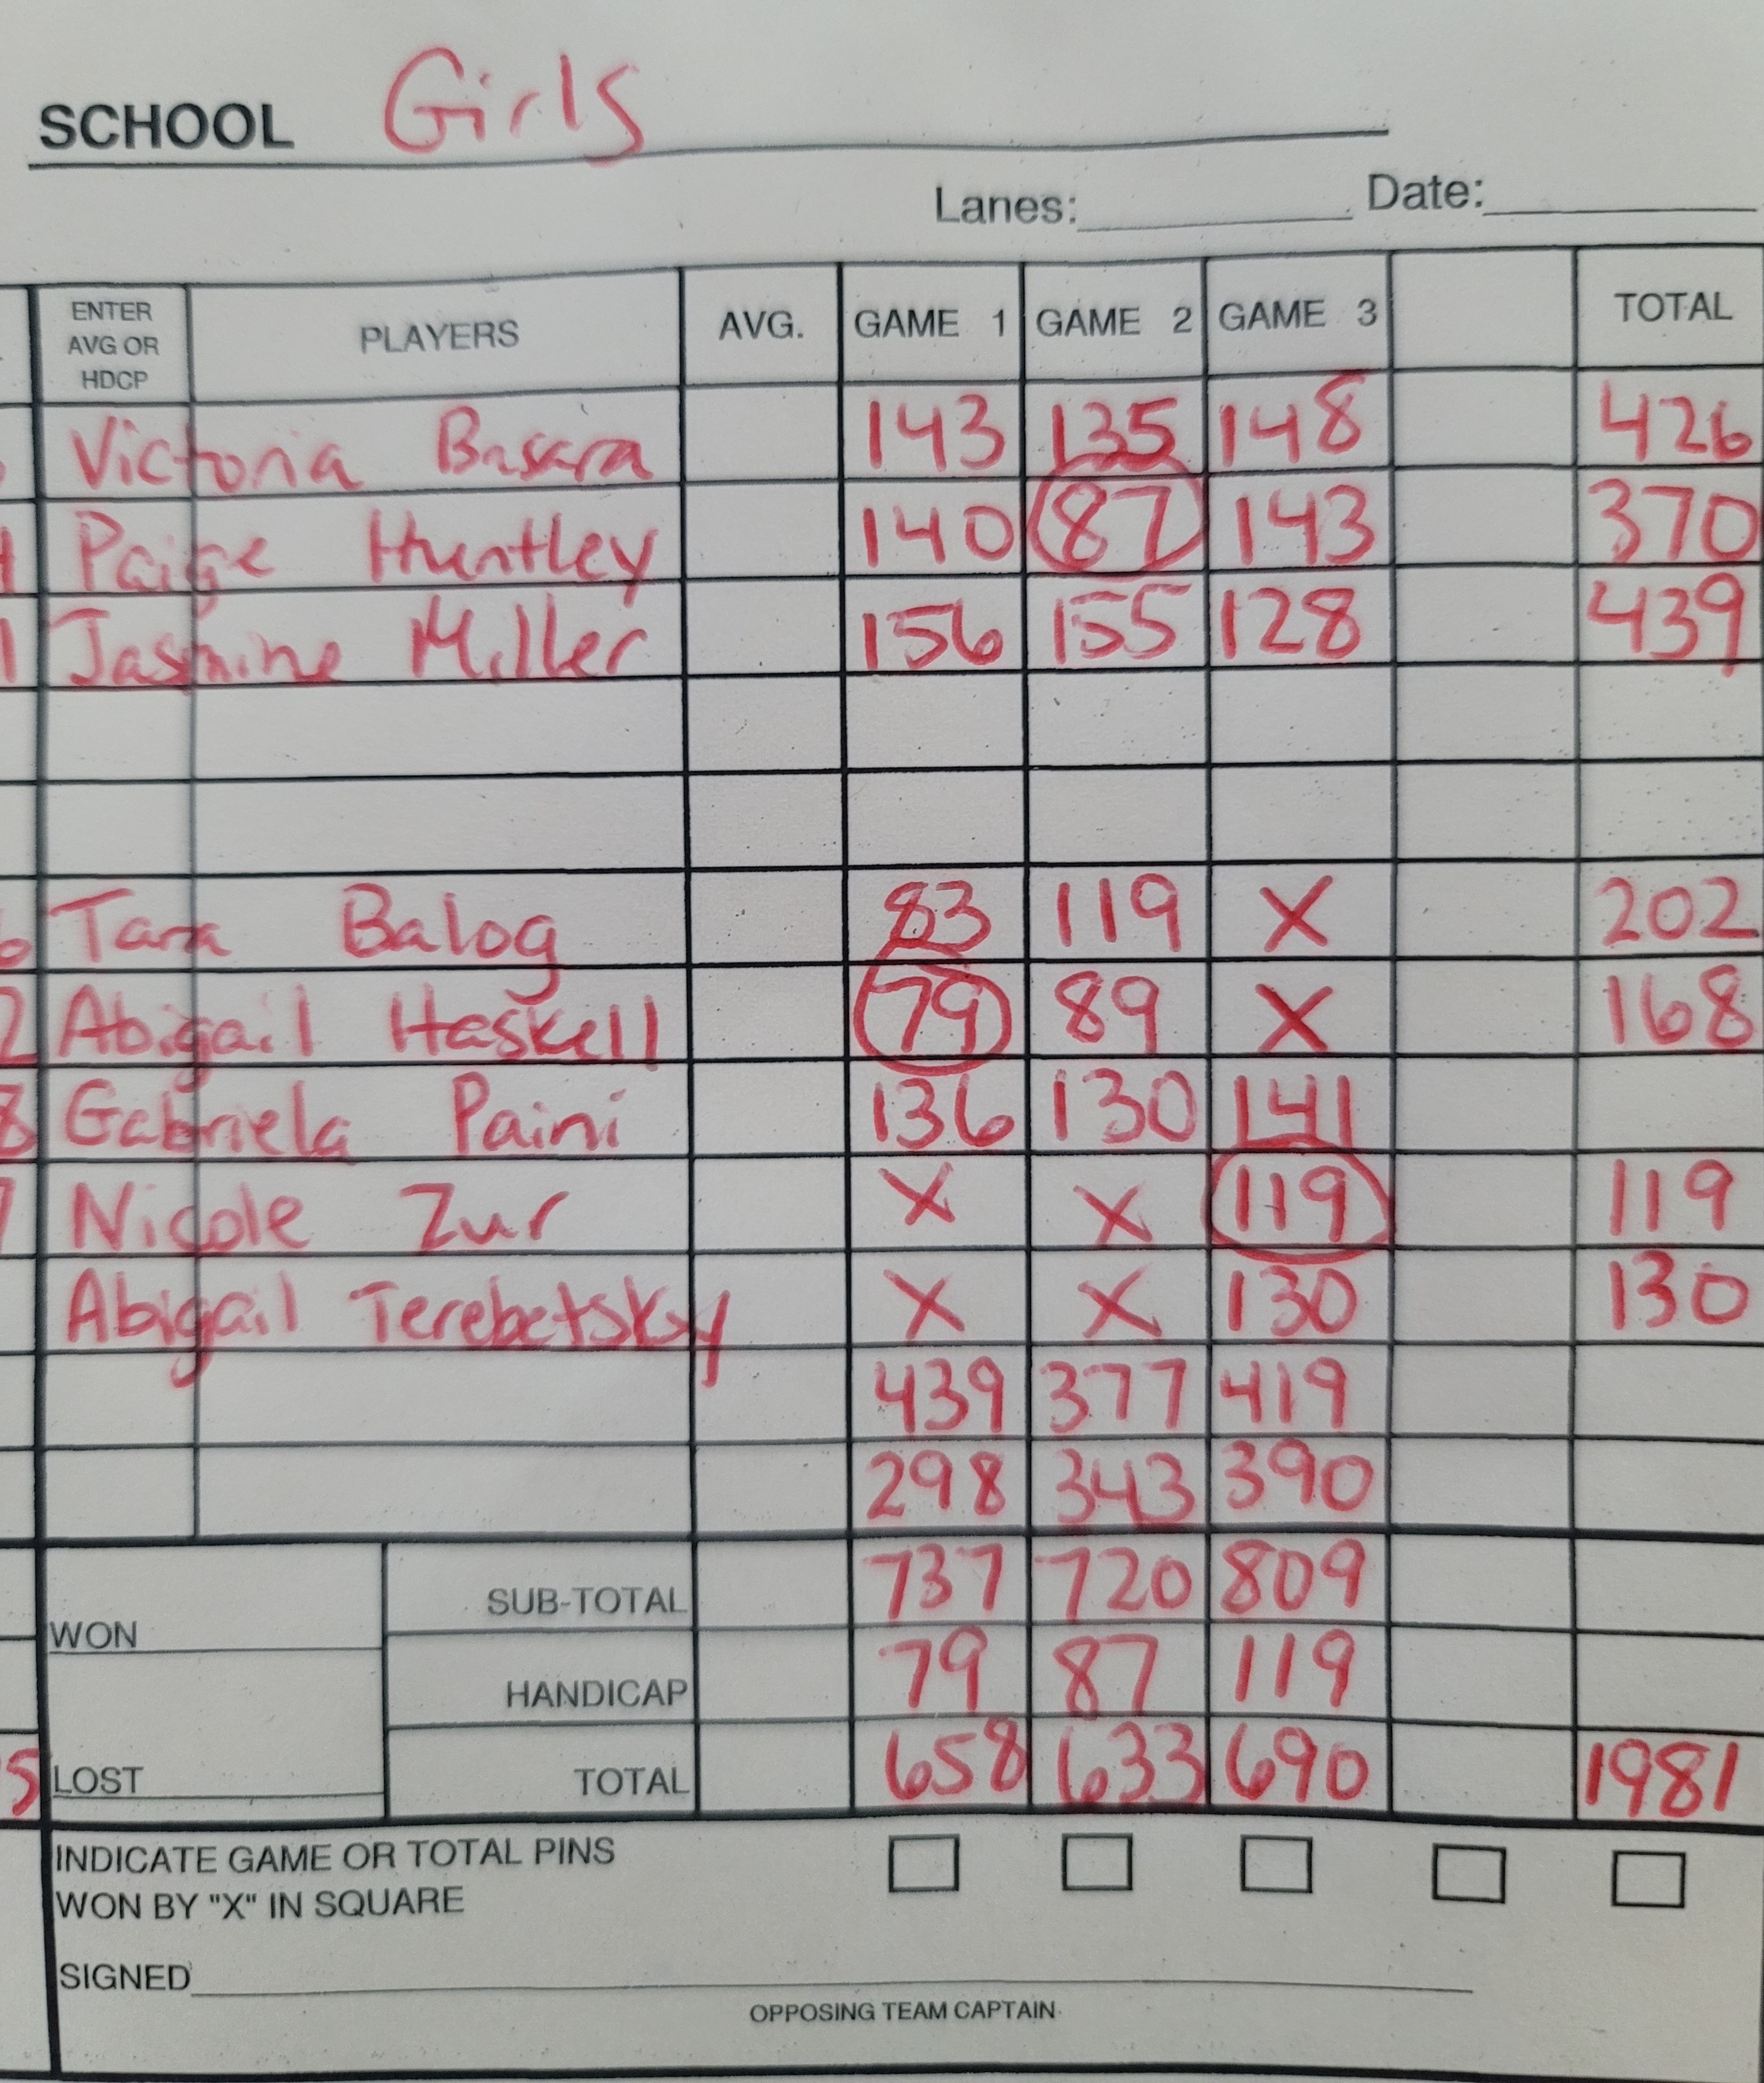 SCHOOL Girls
Lanes: Date:
ENTER AVG OR HDCP PLAYERS AVG. GAME 1 GAME 2 GAME 3 TOTAL
Victoria Basara 143 135 148 426
Paige Huntley 140 87 143 370
Jasmine Miller 156 155 128 439
Tara Balog 83 119 X 202
Abigail Haskell 79 89 X 168
Gabriela Paini 136 130 141
Nicole Zur X X 119 119
Abigail Terebetsky X X 130 130
439 377 419
298 343 390
SUB-TOTAL 737 720 809
WON
HANDICAP 79 87 119
LOST TOTAL 658 633 690 1981
INDICATE GAME OR TOTAL PINS
WON BY "X" IN SQUARE
SIGNED
OPPOSING TEAM CAPTAIN